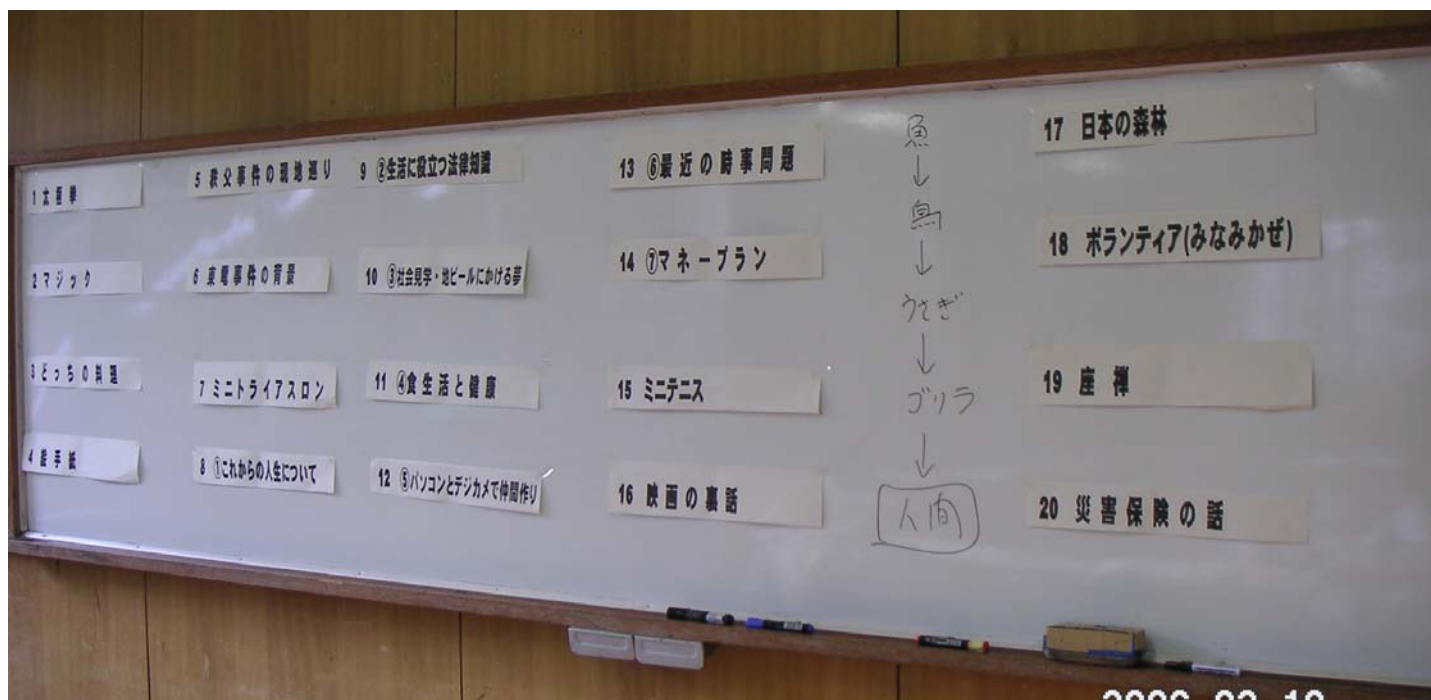 1 太極拳
2 マジック
3 どっちの料理
4 絵手紙
5 秩父事件の現地巡り
6 東電事件の背景
7 ミニトライアスロン
8 ①これからの人生について
9 ②生活に役立つ法律知識
10 ③社会見学・地ビールにかける夢
11 ④食生活と健康
12 ⑤パソコンとデジカメで仲間作り
13 ⑥最近の時事問題
14 ⑦マネープラン
15 ミニテニス
16 映画の裏話
魚
↓
鳥
↓
うさぎ
↓
ゴリラ
↓
人間
17 日本の森林
18 ボランティア(みなみかぜ)
19 座禅
20 災害保険の話